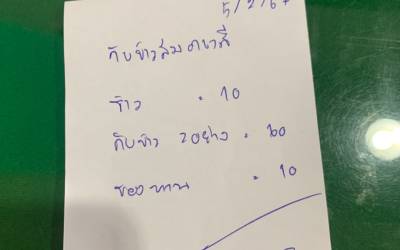 5/2/67
กับข้าวสมคเวสี
ข้าว = 10
กับข้าว 2 อย่าง = 60
ของหวาน = 10